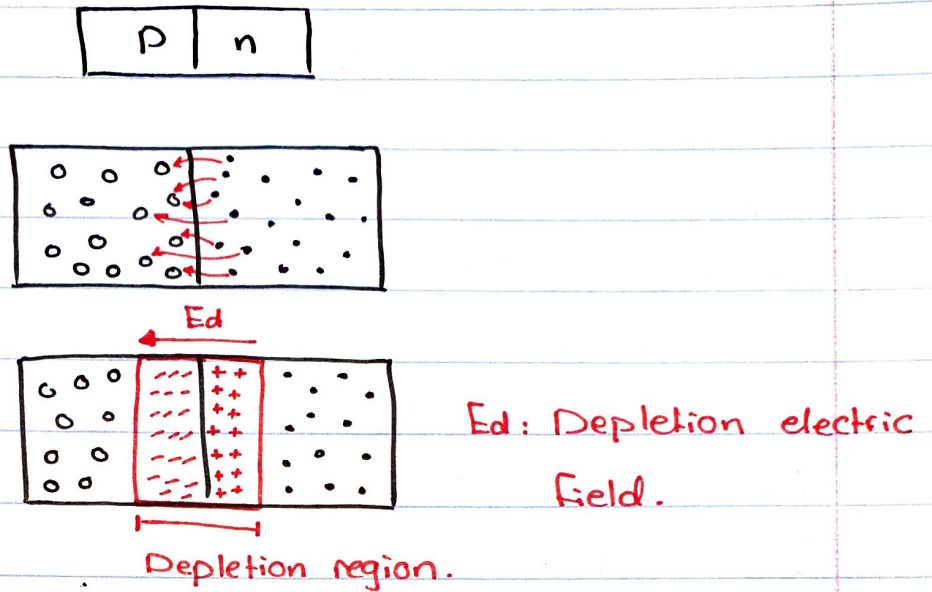 p n
Ed
Ed: Depletion electric
field.
Depletion region.